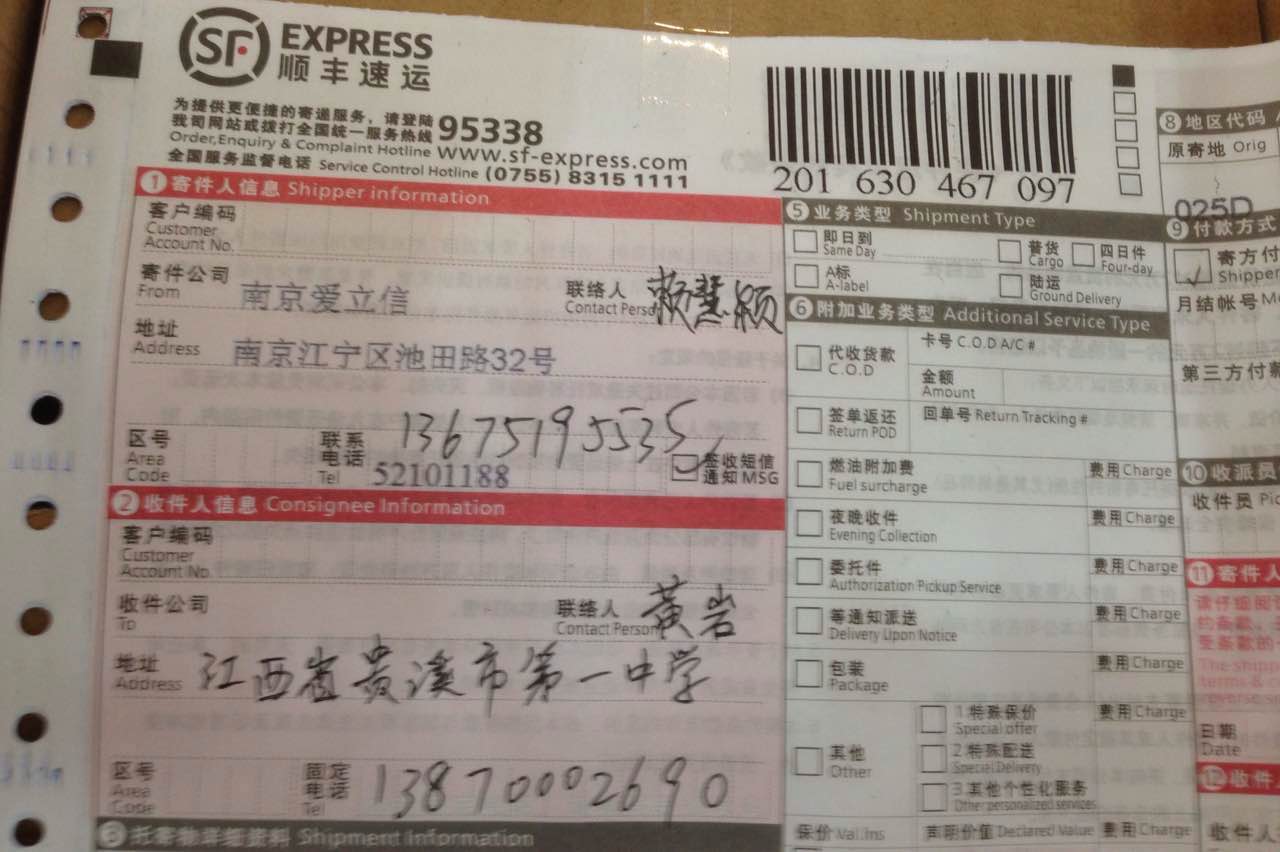 SF EXPRESS
顺丰速运
为提供更便捷的寄递服务，请登陆
我司网站或拨打全国统一服务热线 95338
Order,Enquiry & Complaint Hotline www.sf-express.com
全国服务监督电话 Service Control Hotline (0755) 8315 1111
201 630 467 097
① 寄件人信息 Shipper information
客户编码
Customer
Account No.
寄件公司
From
南京爱立信
联络人
Contact Perso
赖慧颖
地址
Address
南京江宁区池田路32号
13675195535
区号
Area
Code
联系
电话
Tel
52101188
签收短信
通知MSG
② 收件人信息 Consignee Information
客户编码
Customer
Account No.
收件公司
To
联络人
Contact Person
黄岩
地址
Address
江西省贵溪市第一中学
区号
Area
Code
固定
电话
Tel
13870002690
③ 托寄物详细资料 Shipment Information
⑤ 业务类型 Shipment Type
即日到
Same Day
普货
Cargo
四日件
Four-day
A标
A-label
陆运
Ground Delivery
⑥ 附加业务类型 Additional Service Type
代收货款
C.O.D
卡号 C.O.D A/C #
金额
Amount
签单返还
Return POD
回单号 Return Tracking #
燃油附加费
Fuel surcharge
费用 Charge
夜晚收件
Evening Collection
费用 Charge
委托件
Authorization Pickup Service
费用 Charge
等通知派送
Delivery Upon Notice
费用 Charge
包装
Package
费用 Charge
其他
Other
1.特殊保价
Special offer
费用 Charge
2.特殊配送
Special Delivery
3.其他个性化服务
Other personalized services
保价 Val.Ins
声明价值 Declared Value
费用 Charge
⑧ 地区代码
原寄地 Orig
025D
⑨ 付款方式
寄方付
Shipper
月结帐号 Mo
第三方付款
⑩ 收派员
收件员 Pic
⑪ 寄件人
请仔细阅
约条款，
受条款的
The shipp
terms & c
reverse s
日期
Date
⑫ 收件人
收件人